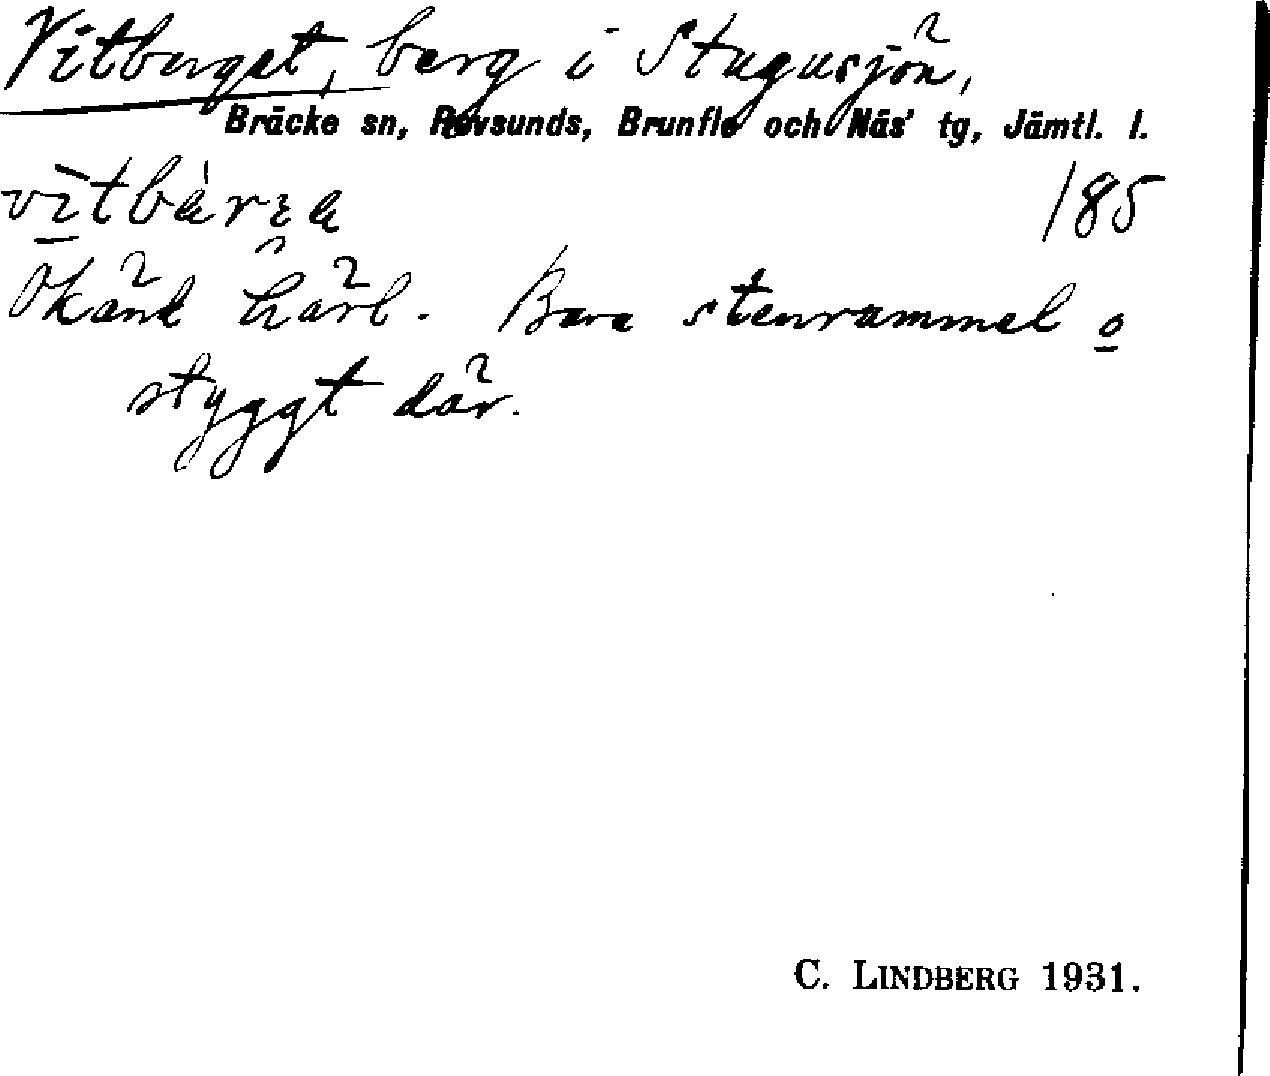 Vitberget, berg i Stugusjön,
Bräcke sn, Revsunds, Brunflo och Näs' tg, Jämtl. l.
/85
Okänd härl. Bara stenrammel o
styggt där.
C. LINDBERG 1931.